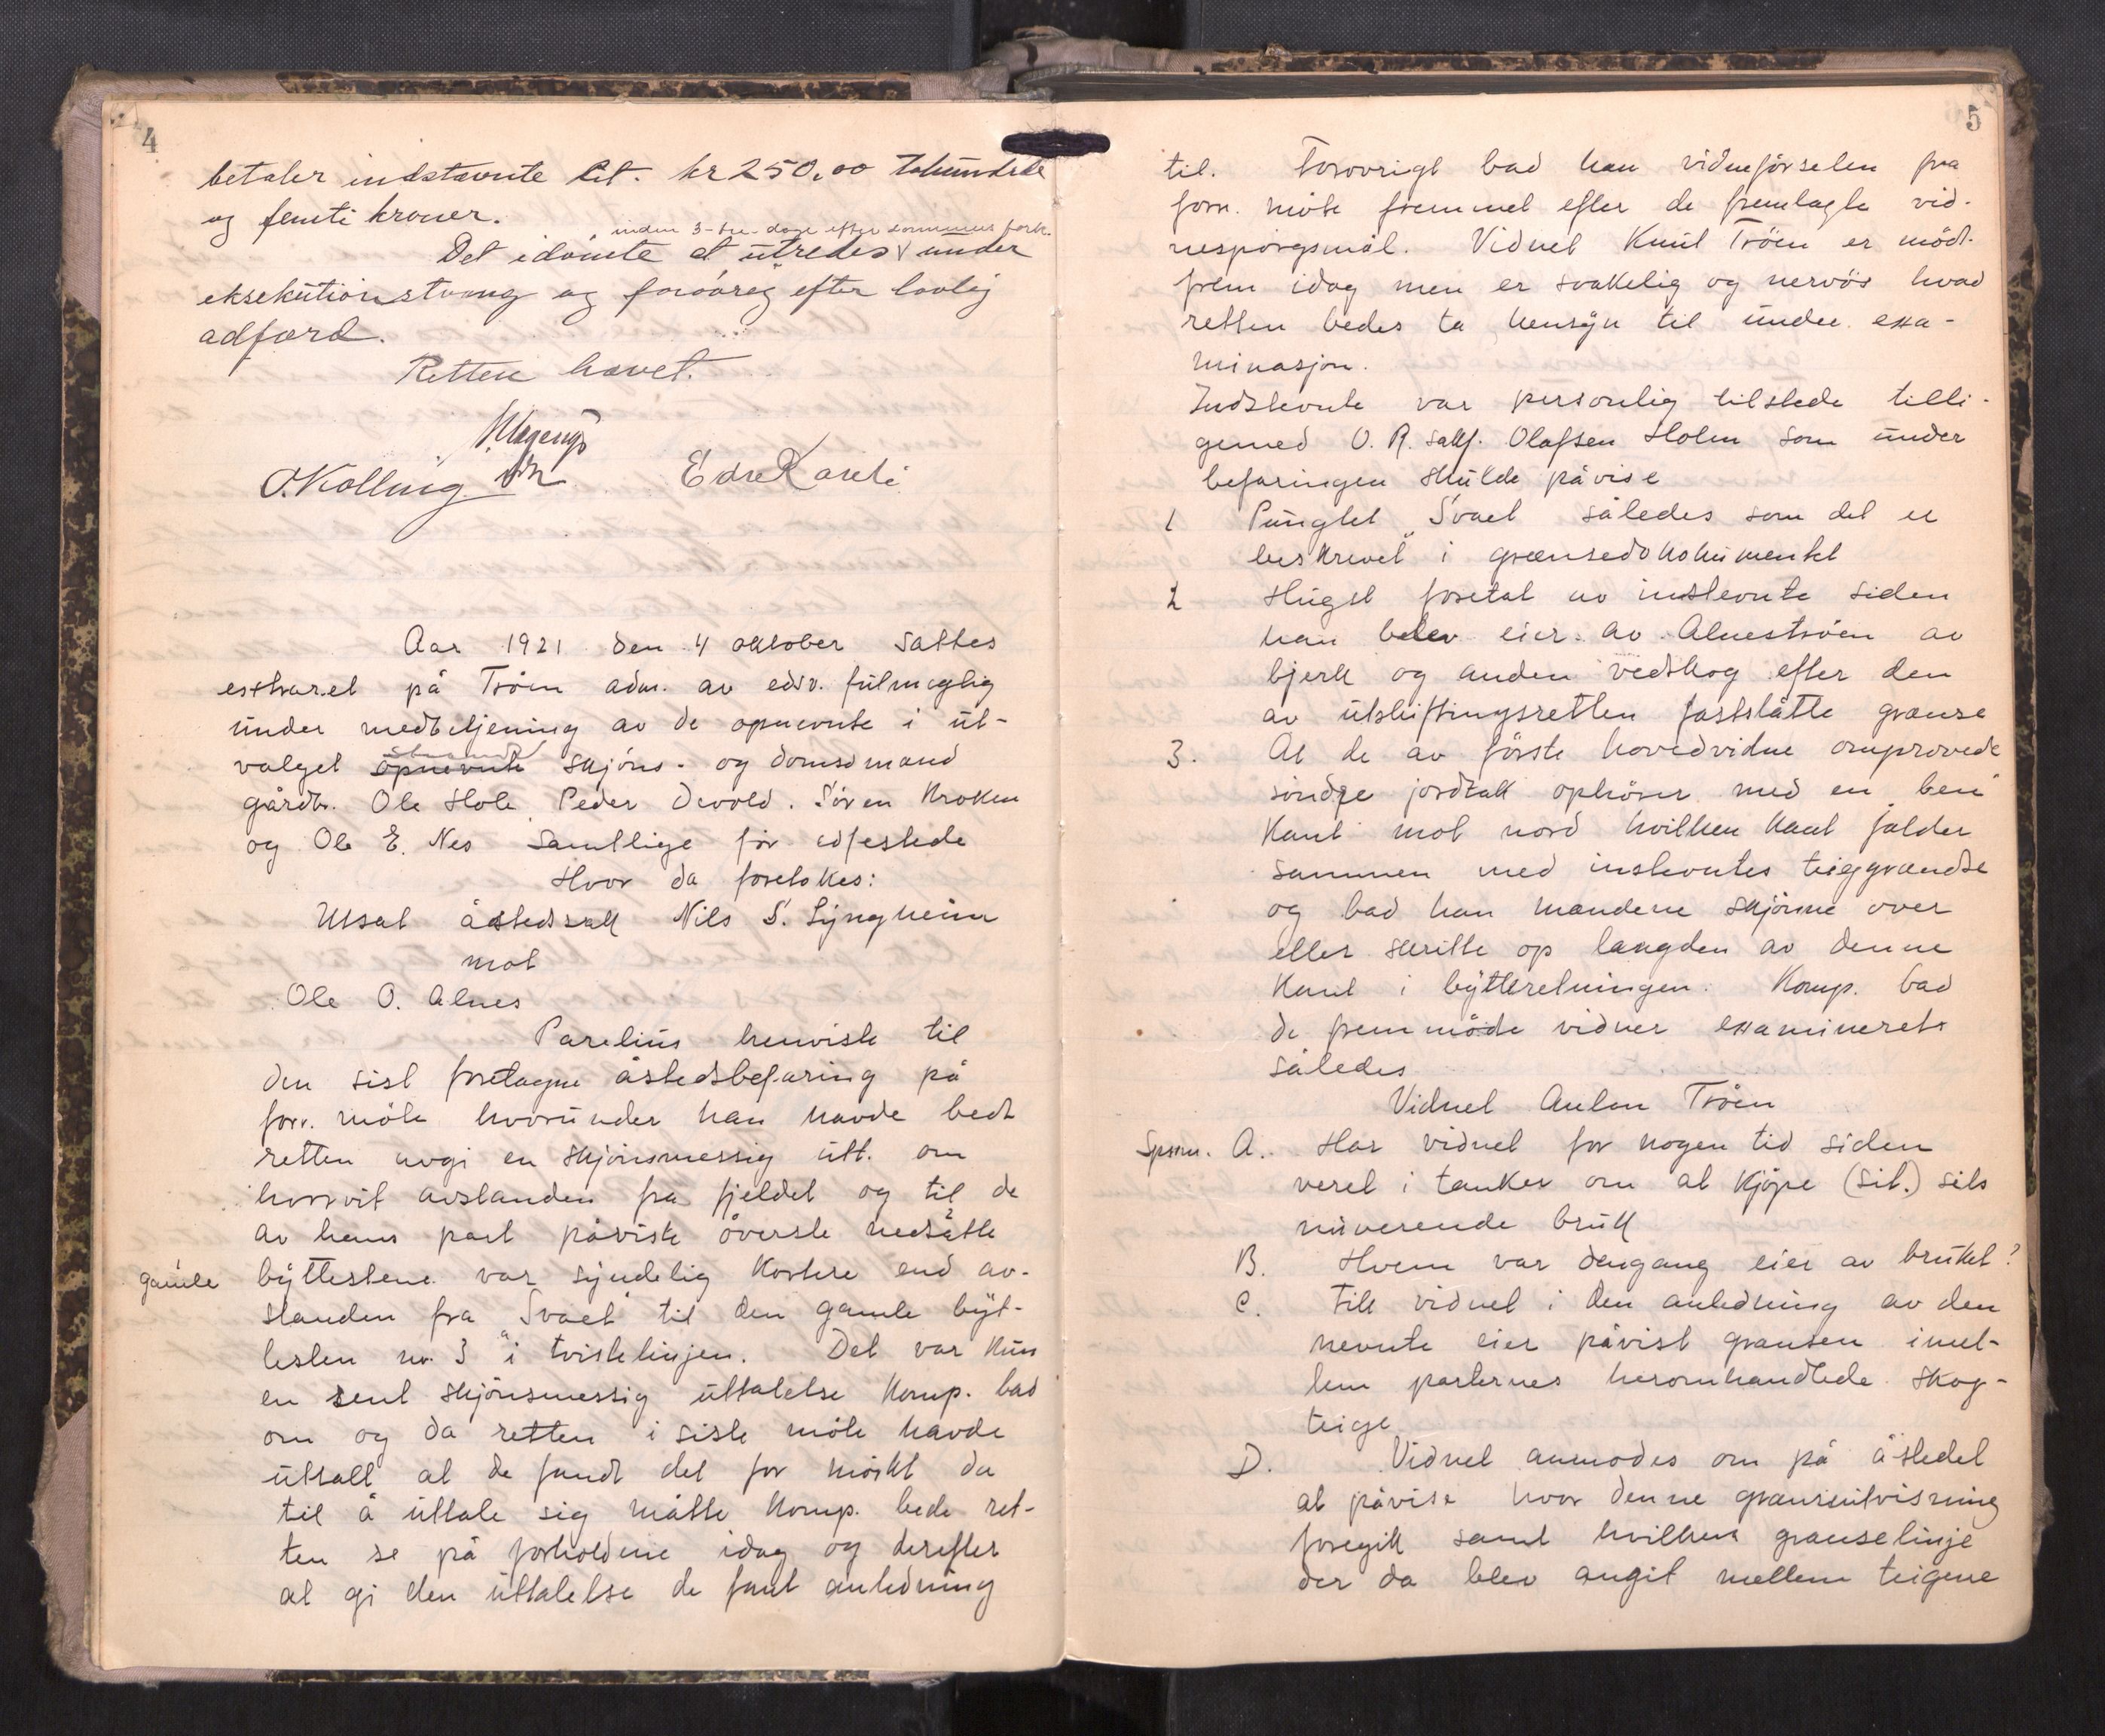 4
betaler indstævnte Cit. kr 250,00 tohundrede
og femti kroner.
inden 3-tre-dage efter dommens fork.
Det idömte at utredes under
eksekutionstvang og foröörig efter lovlig
adfærd.
Retten hævet.
O. Kolling
Aar 1921 den 4 oktober sattes
extraret på Tröen adm. av edsv. fulmegtig
under medbetjening av de opnevnte i ut-
valget opnevnte skjöns- og domsmænd
gårdbr. Ole Hole, Peder Devold. Sören Kroken
og Ole E. Nes samtlige för edfestede
Hvor da foretokes:
Utsat åstedssak Nils S. Lyngheim
mot
Ole O. Alnes
Parelius henviste til
den sist foretagne åstedsbefaring på
forr. möte hvorunder han havde bedt
retten avgi en skjönsmessig utt. om
hvorvit avstanden fra fjeldet og til de
av hans part påviste överste nedsatte
gamle byttestene var syndelig kortere end av-
standen fra "Svaet" til den gamle byt-
testen nr. 3 i tvistelinjen. Det var kun
en rent skjönsmessig uttalelse komp. bad
om og da retten i siste möte havde
uttalt at de fandt det for mörkt da
til å uttale sig måtte komp. bede ret-
ten se på forholdene idag og derefter
at gi den uttalelse de fant anledning
5
til. Forövrigt bad han vidneförselen fra
forr. möte fremmet efter de fremlagte vid-
nespörgsmål. Vidnet Knut Tröen er mödt
frem idag men er svakelig og nervös hvad
retten bedes ta hensyn til under exa-
minasjon.
Indstevnte var personlig tilstede tilli-
gemed O. R. sakf. Olafsen Holm som under
befaringen skulde påvise
1 Punktet "Svaet" således som det er
beskrevet i grænsedokokumentet
2 Hugst foretat av instevnte siden
han belev eier av Alneströen av
bjerk og anden vedskog efter den
av utskiftingsretten fastslåtte grænse
3. At de av förste hovedvidne omprovede
söndre jordtak ophörer med en ben
kant mot nord hvilken kant falder
sammen med instevntes teiggrændse
og bad han mændene skjönne over
eller skritte op længden av denne
kant i bytteretningen. Komp. bad
de fremmöde vidner examinerets
således
Vidnet Anton Tröen
Spörm. A. Har vidnet for nogen tid siden
veret i tanker om at kjöpe (Sit.) sits
nuverende bruk
B. Hvem var dengang eier av bruket?
C. Fikk vidnet i den anledning av den
nevnte eier påvist grænsen imel-
lem parternes heromhandlede skog-
teige
D. Vidnet anmodes om på åstedet
at påvise hvor denne grænseutvisning
foregikk samt hvilken grænselinje
der da blev angit mellem teigene